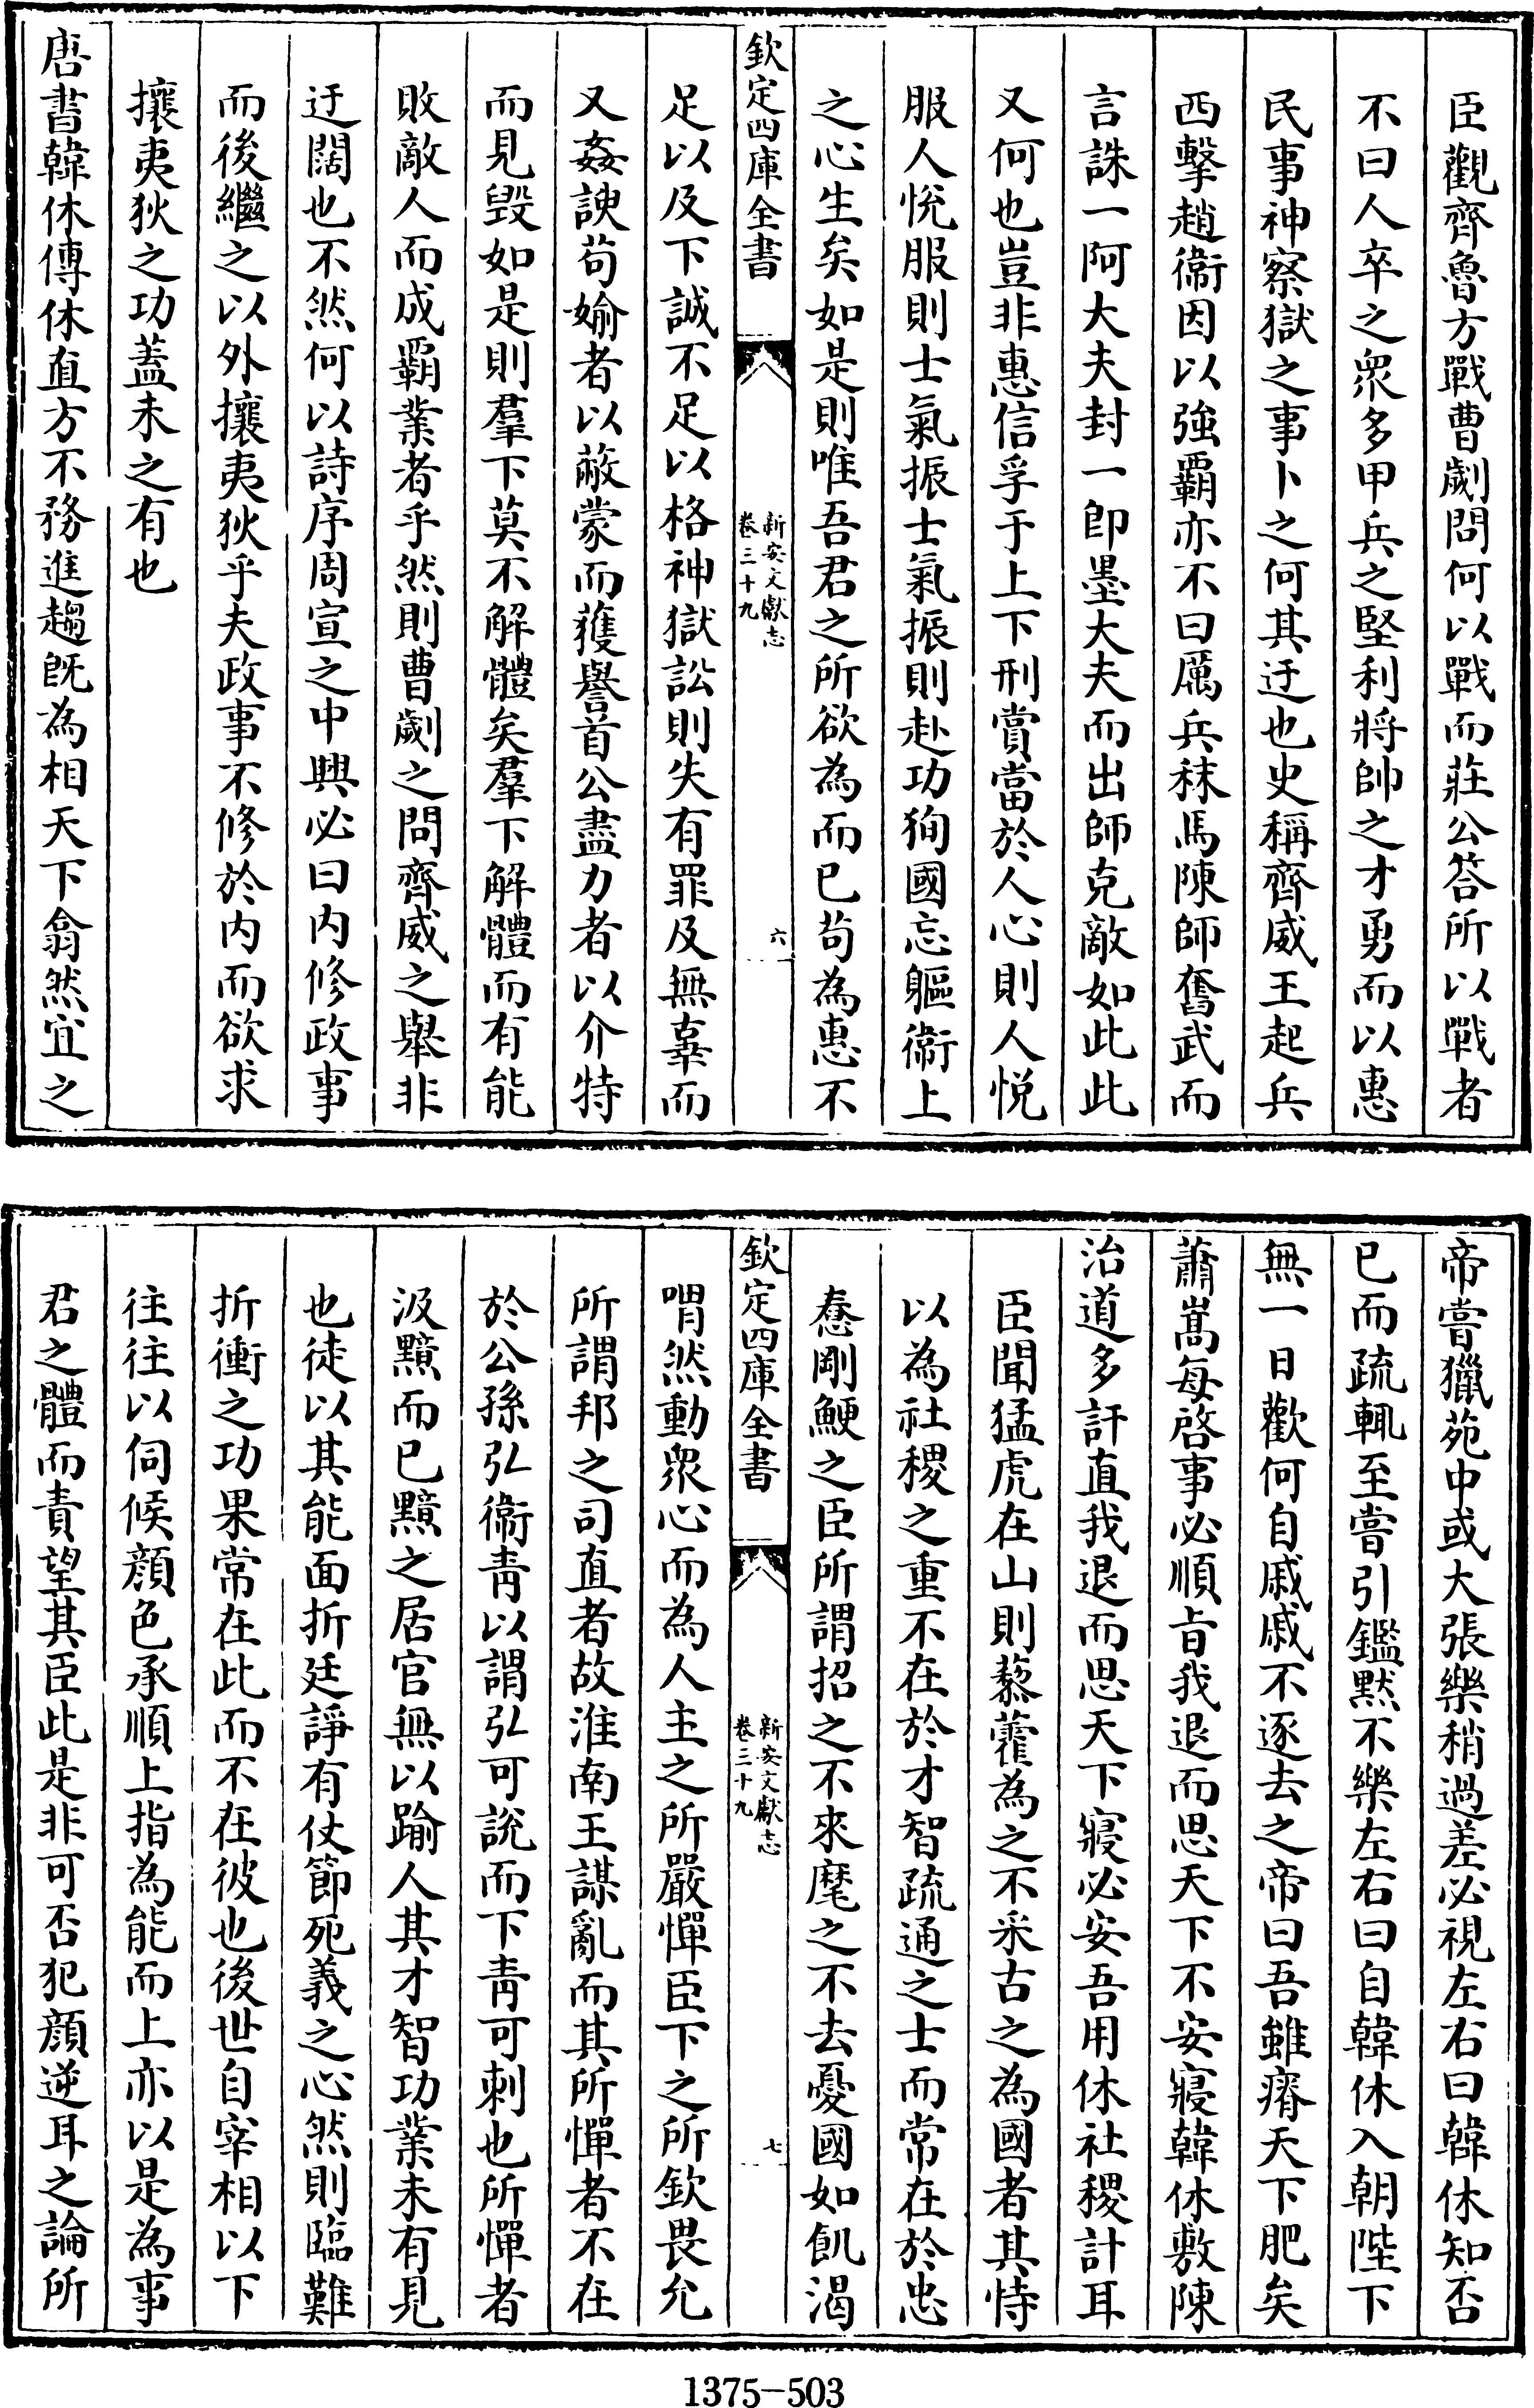 臣觀齊魯方戰曹劌問何以戰而莊公答所以戰者
不曰人卒之衆多甲兵之堅利將帥之才勇而以惠
民事神察獄之事卜之何其迂也史稱齊威王起兵
西擊趙衞因以強霸亦不曰厲兵秣馬陳師奮武而
言誅一阿大夫封一卽墨大夫而出師克敵如此此
又何也豈非惠信孚于上下刑賞當於人心則人悅
服人悅服則士氣振士氣振則赴功狥國忘軀衞上
之心生矣如是則唯吾君之所欲為而已茍為惠不
欽定四庫全書
新安文獻志
卷三十九
六
足以及下誠不足以格神獄訟則失有罪及無辜而
又姦諛茍媮者以蔽蒙而獲譽首公盡力者以介特
而見毀如是則羣下莫不解體矣羣下解體而有能
敗敵人而成霸業者乎然則曹劌之問齊威之舉非
迂闊也不然何以詩序周宣之中興必曰内修政事
而後繼之以外攘夷狄乎夫政事不修於内而欲求
攘夷狄之功蓋未之有也
唐書韓休傳休直方不務進趨旣為相天下翕然宜之
帝嘗獵苑中或大張樂稍過差必視左右曰韓休知否
已而疏輒至嘗引鑑默不樂左右曰自韓休入朝陛下
無一日歡何自戚戚不逐去之帝曰吾雖瘠天下肥矣
蕭嵩每啓事必順旨我退而思天下不安寢韓休敷陳
治道多訐直我退而思天下寢必安吾用休社稷計耳
臣聞猛虎在山則藜藿為之不采古之為國者其恃
以為社稷之重不在於才智疏通之士而常在於忠
憃剛鯁之臣所謂招之不來麾之不去憂國如飢渴
欽定四庫全書
新安文獻志
卷三十九
七
喟然動衆心而為人主之所嚴憚臣下之所欽畏允
所謂邦之司直者故淮南王謀亂而其所憚者不在
於公孫弘衞靑以謂弘可說而下靑可刺也所憚者
汲黯而已黯之居官無以踰人其才智功業未有見
也徒以其能面折廷諍有仗節死義之心然則臨難
折衝之功果常在此而不在彼也後世自宰相以下
往往以伺候顔色承順上指為能而上亦以是為事
君之體而責望其臣此是非可否犯顔逆耳之論所
1375-503